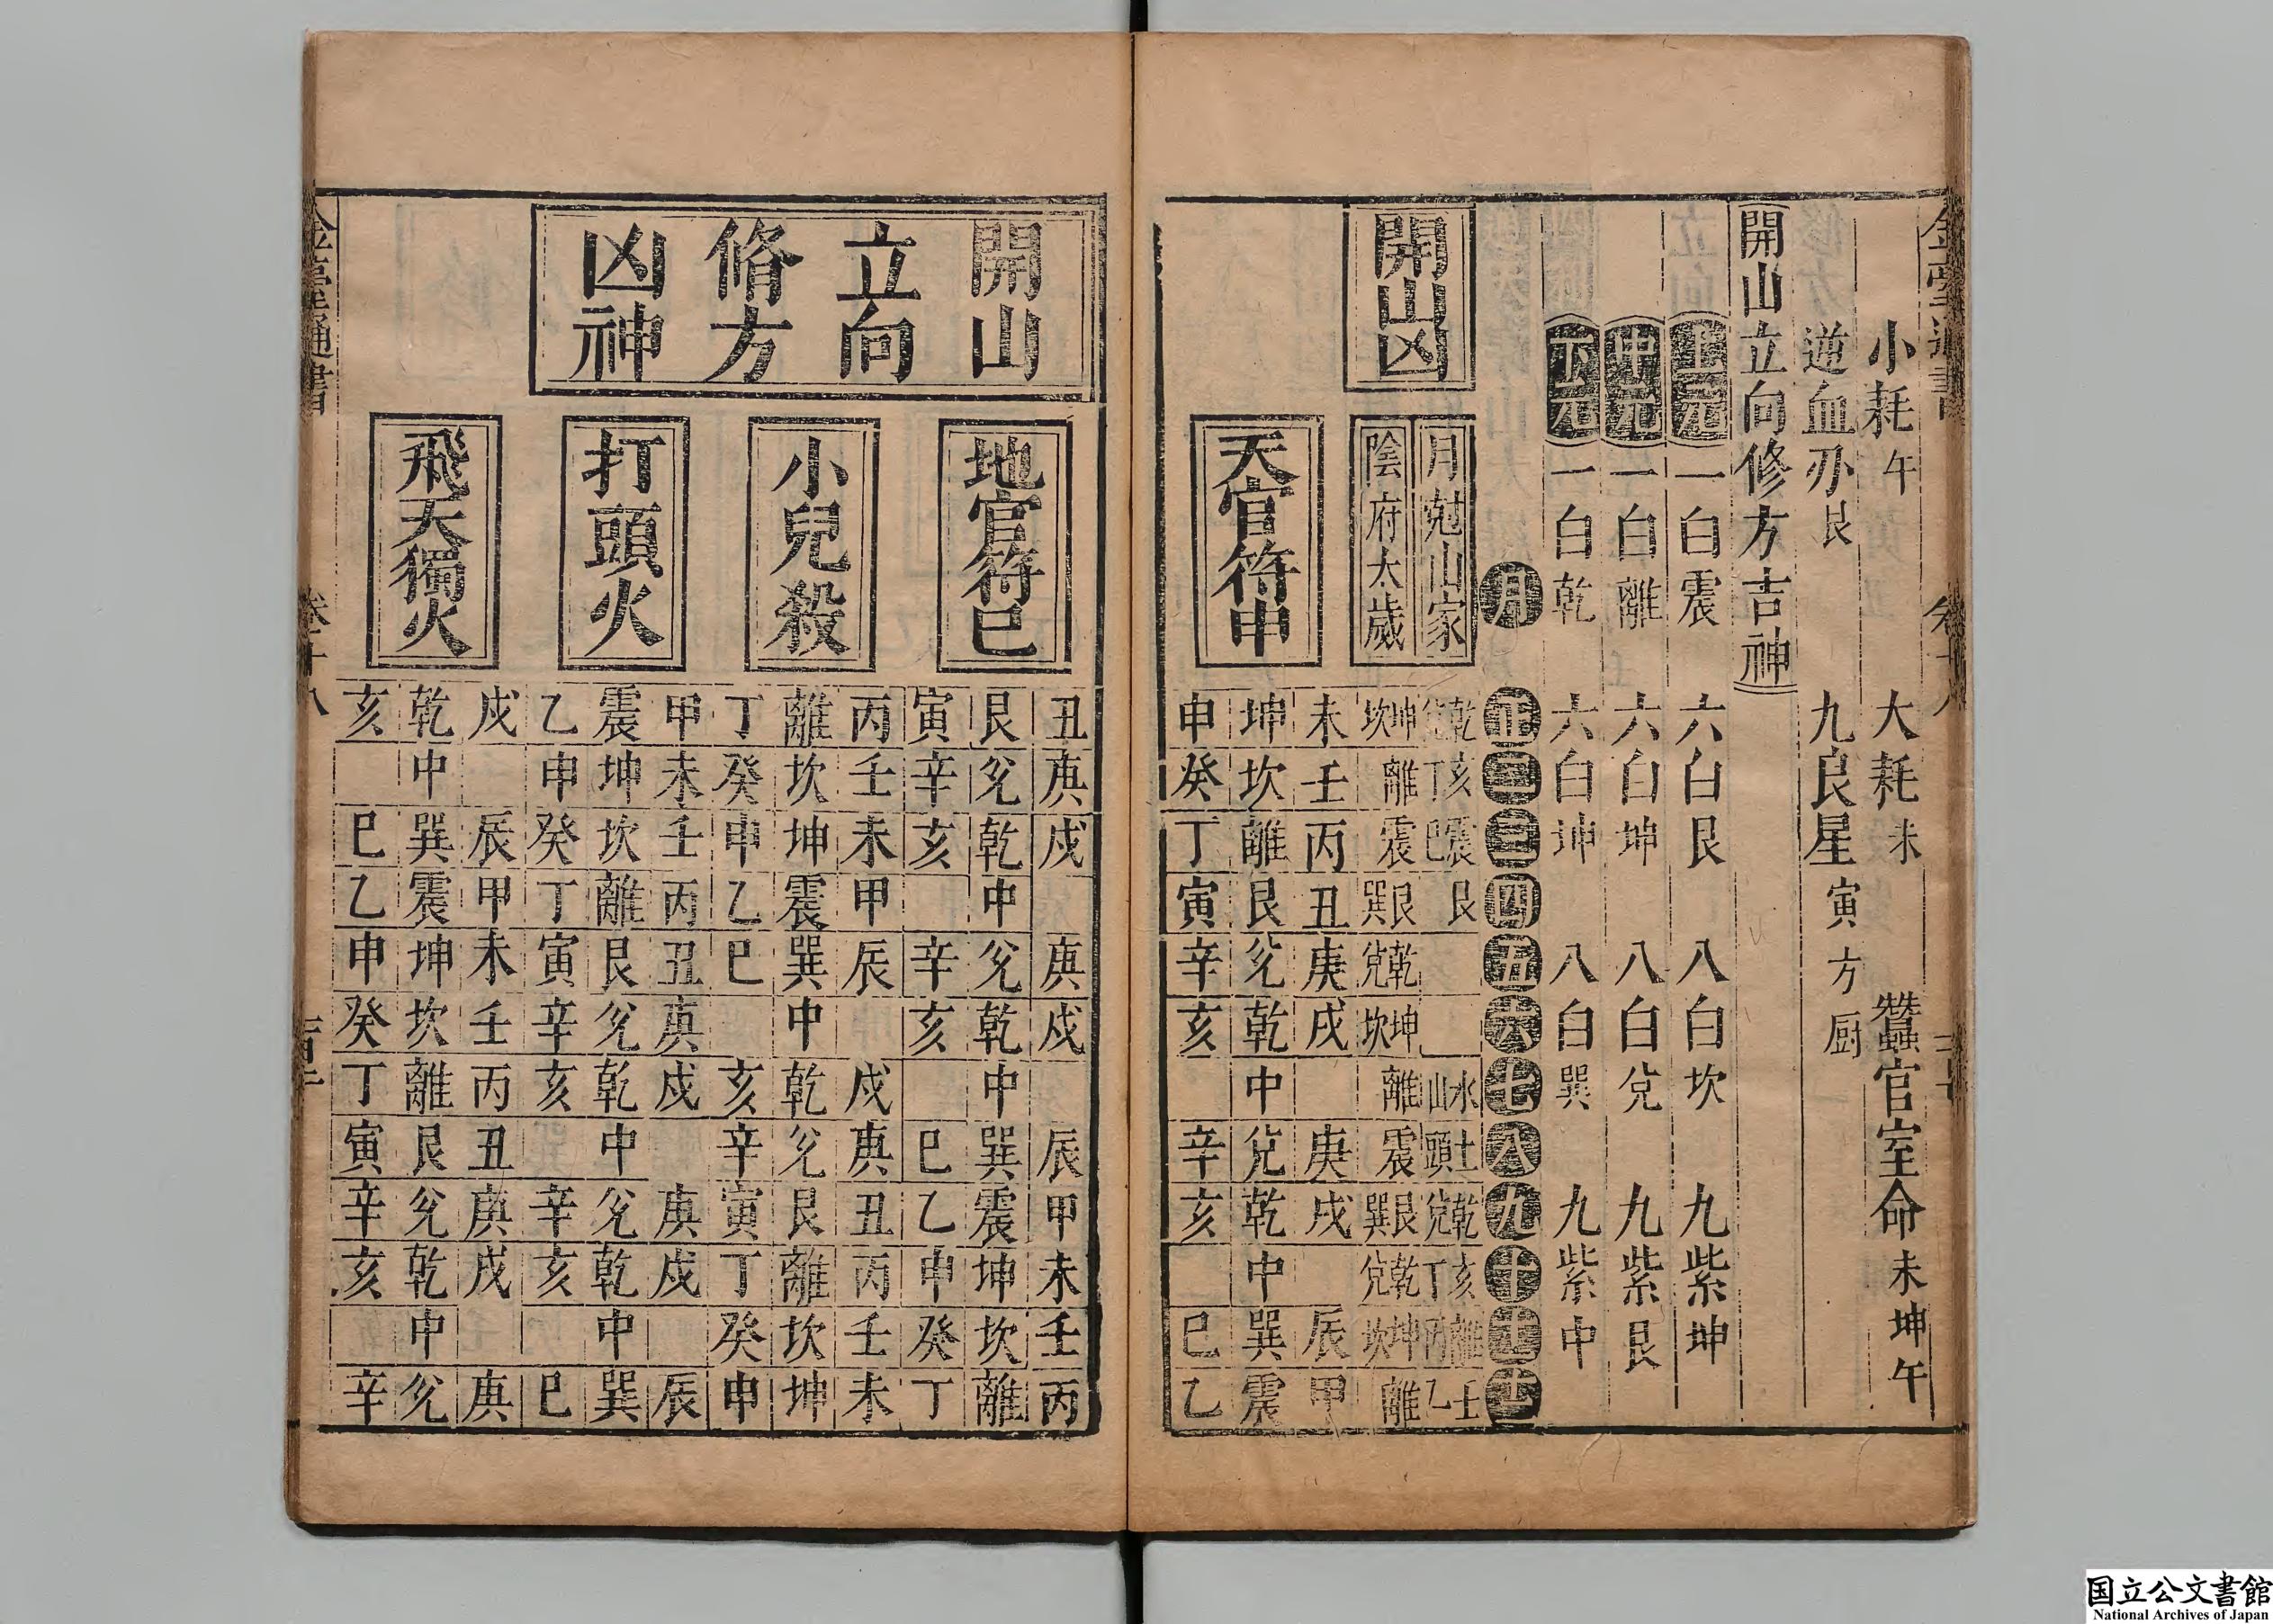 小耗午 大耗未 蠶官室命未坤午
逆血刃艮 九良星寅方厨
開山立向修方吉神
上元 一白震 六白艮 八白坎 九紫坤
中元 一白離 六白坤 八白兌 九紫艮
下元 一白乾 六白坤 八白巽 九紫中
月 正 二 三 四 五 六 七 八 九 十 十一 十二
開山凶
月尅山家 乾兌 亥丁 震巳 艮 水山 土頭 乾兌 亥丁 離丙 壬乙
陰府太歲 坤坎 離 震 艮巽 乾兌 坤坎 離 震 艮巽 乾兌 坤坎 離
天官符申
未 壬 丙 丑 庚 戌 庚 戌 辰 甲
坤 坎 離 艮 兊 乾 中 兊 乾 中 巽 震
申 癸 丁 寅 辛 亥 辛 亥 巳 乙
開山
立向
脩方
凶神
地官符巳
丑 庚 戌 庚 戌 辰 甲 未 壬 丙
艮 兊 乾 中 兊 乾 中 巽 震 坤 坎 離
寅 辛 亥 辛 亥 巳 乙 申 癸 丁
小兒殺
丙 壬 未 甲 辰 戌 庚 丑 丙 壬 未
離 坎 坤 震 巽 中 乾 兊 艮 離 坎 坤
丁 癸 申 乙 巳 亥 辛 寅 丁 癸 申
打頭火
甲 未 壬 丙 丑 庚 戌 庚 戌 辰
震 坤 坎 離 艮 兊 乾 中 兊 乾 中 巽
乙 申 癸 丁 寅 辛 亥 辛 亥 巳
飛天獨火
戌 辰 甲 未 壬 丙 丑 庚 戌 庚
乾 中 巽 震 坤 坎 離 艮 兊 乾 中 兊
亥 巳 乙 申 癸 丁 寅 辛 亥 辛
通書
国立公文書館
National Archives of Japan